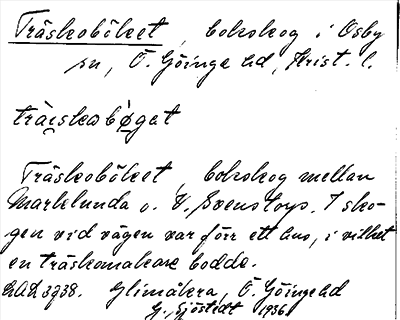 Träskoböket, bokskog i Osby
sn, Ö. Göinge hd, Krist. l.
Träskobøged
Träskoböket, bokskog mellan
Marklunda o. V. Svenstorp. I sko-
gen vid vägen var förr ett hus, i vilket
en träskomakare bodde.
LAL 3938. Glimåkra, Ö. Göinge hd
G. Sjöstedt 1936